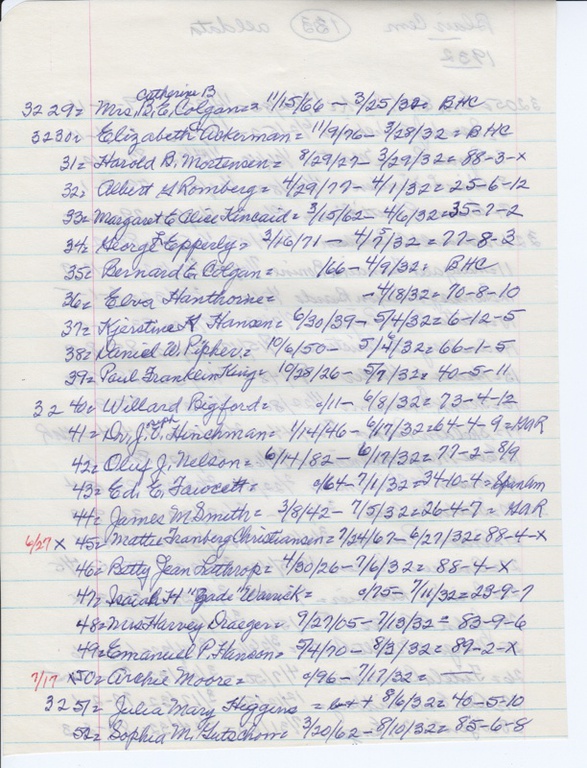 Catherine B
3229= Mrs. B.E. Colgan= 11/15/66 - 3/25/32= BHC
3230= Elizabeth Ackerman= 11/9/76 - 3/28/32= BHC
31= Harold B. Mortensen= 8/29/27 - 3/29/32= 88-3-X
32= Albert G Romberg= 4/29/77 - 4/1/32= 25-6-12
33= Margaret E Alice Kincaid= 3/15/62 - 4/6/32= 35-7-2
34= George L Epperly= 3/16/71 - 4/5/32= 77-8-3
35= Bernard E. Colgan= /66 - 4/9/32= BHC
36= Elva Hanthorne= - 4/18/32= 70-8-10
37= Kjerstine K Hansen= 6/30/39 - 5/4/32= 6-12-5
38= Daniel W. Pipher= 10/6/50 - 5/4/32= 66-1-5
39= Paul Franklin King= 10/28/26 - 5/7/32= 40-5-11
3240= Willard Bigford= c/11 - 6/8/32= 73-4-12
41= Dr. Joseph V. Hinchman= 1/14/46 - 6/17/32= 64-4-9=
42= Oluf J. Nelson= 6/14/82 - 6/17/32= 77-2-8/9
43= Ed. E. Fawcett= c/64 - 7/1/32= 34-10-4= SpanAm
44= James M Smith= 3/8/42 - 7/5/32= 26-4-7=
6/27 X 45= Mattie Granberg Christiansen= 7/24/67 - 6/27/32= 88-4-X
46= Betty Jean Lathrop= 4/30/26 - 7/6/32= 88-4-X
47= Isaiah H "Zade" Warrick= c/75 - 7/11/32= 23-9-7
48= Mrs Harvey Draeger= 9/27/05 - 7/13/32= 83-9-6
49= Emanuel P. Hanson= 5/4/70 - 8/3/32= 89-2-X
7/17 X 50= Archie Moore= c/96 - 7/17/32=
3251= Julia Mary Higgins = 8/6/32= 40-5-10
52= Sophia M. Gutschow= 3/20/62 - 8/10/32= 85-6-8